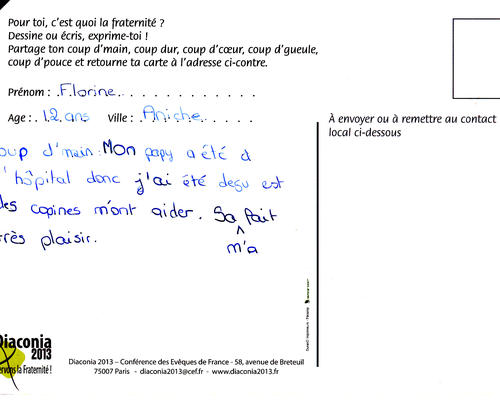 Pour toi, c'est quoi la fraternité ?
Dessine ou écris, exprime-toi !
Partage ton coup d'main, coup dur, coup d'cœur, coup d'gueule,
coup d'pouce et retourne ta carte à l'adresse ci-contre.
Prénom : Florine
Age : 12 ans Ville : Aniche
À envoyer ou à remettre au contact
local ci-dessous
oup d'main : Mon papy a été à
l'hôpital donc j'ai été deçu est
des copines m'ont aider. Sa fait
m'a
très plaisir.
Diaconia
2013
ervons la Fraternité !
Diaconia 2013 – Conférence des Evêques de France - 58, avenue de Breteuil
75007 Paris - diaconia2013@cef.fr - www.diaconia2013.fr